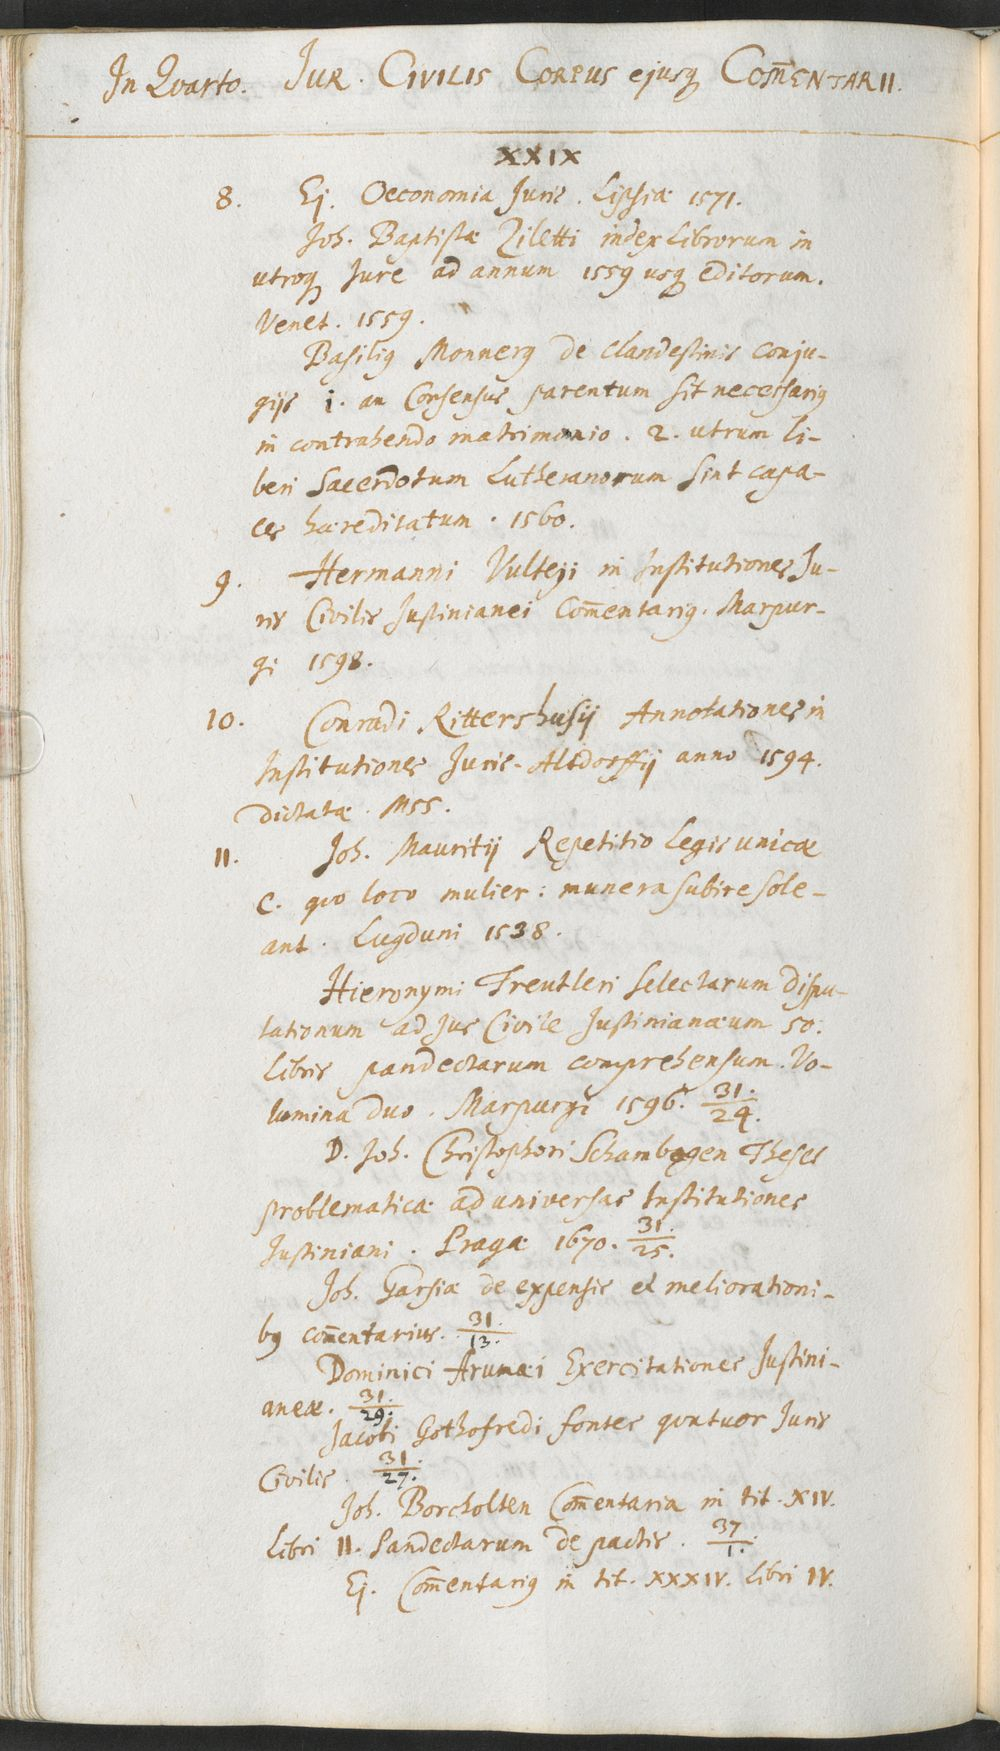 In Qvarto. JUR. CIVILIS CORPUS ejusq COM̄ENTARII.
XXIX
8. Ej. Oeconomia Juris. Lipsiæ 1571.
Joh. Baptistæ Ziletti index Librorum in
utroq Jure ad annum 1559 usq editorum.
Venet. 1559.
Basilig Monnerg de clandestinis conju-
gijs 1. an Consensus parentum sit necessarig
in contrahendo matrimonio. 2. utrum li-
beri Sacerdotum Lutheranorum sint capa-
ces hæreditatum. 1560.
9. Hermanni Vulteji in Institutiones Ju-
ris Civilis Justinianei Com̄entarig. Marpur-
gi 1598.
10. Conradi Rittershusij Annotationes in
Institutiones Juris. Altdorffij anno 1594.
dictatæ. MSS.
11. Joh. Mauritij Repetitio Legis unicæ
C. quo loco mulier: munera subire sole-
ant. Lugduni 1538.
Hieronymi Treutleri selectarum dispu-
tationum ad Jus Civile Justinianæum 50.
libris pandectarum comprehensum. Vo-
lumina duo. Marpurgi 1596. 31./24.
D. Joh. Christophori Schambogen Theses
problematicæ ad universas Institutiones
Justiniani. Pragæ 1670. 31./25.
Joh. Garsiæ de expensis et meliorationi-
bg com̄entarius. 31./13.
Dominici Arumæi Exercitationes Justini-
aneæ. 31./29.
Jacobi Gothofredi fontes qvatuor Juris
Civilis. 31./27.
Joh. Borcholten Com̄entaria in tit. XIV.
Libri II. Pandectarum de pactis. 37/1.
Ej. Com̄entarig in tit. XXXIV. Libri IV.